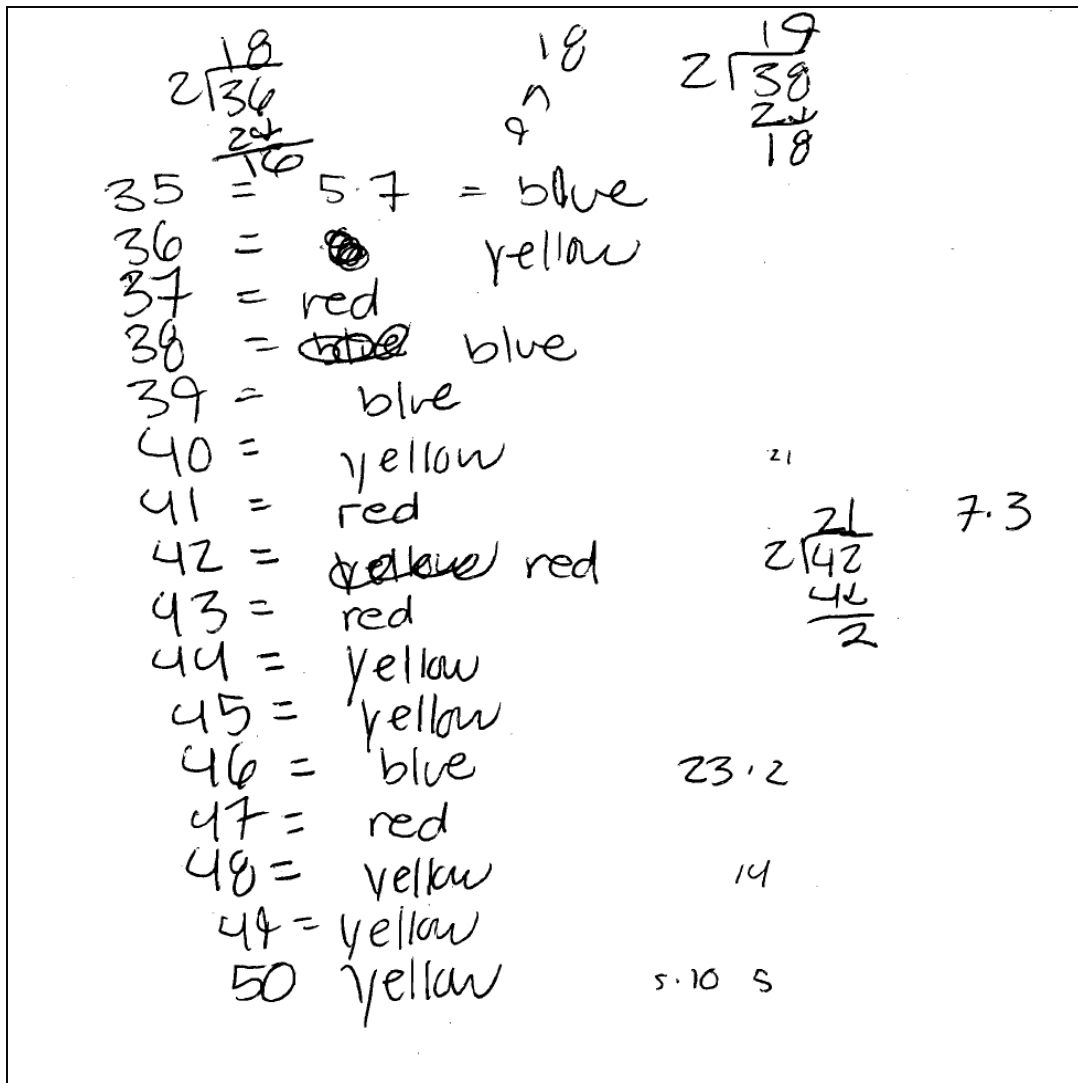 18
2√36
2↓
16
18
^
9
19
2√38
2↓
18
35 = 5·7 = blue
36 = yellow
37 = red
38 = blue
39 = blue
40 = yellow
21
41 = red
42 = red
21
2√42
4↓
2
7·3
43 = red
44 = yellow
45 = yellow
46 = blue 23·2
47 = red
48 = yellow 14
49 = yellow
50 yellow 5·10 5